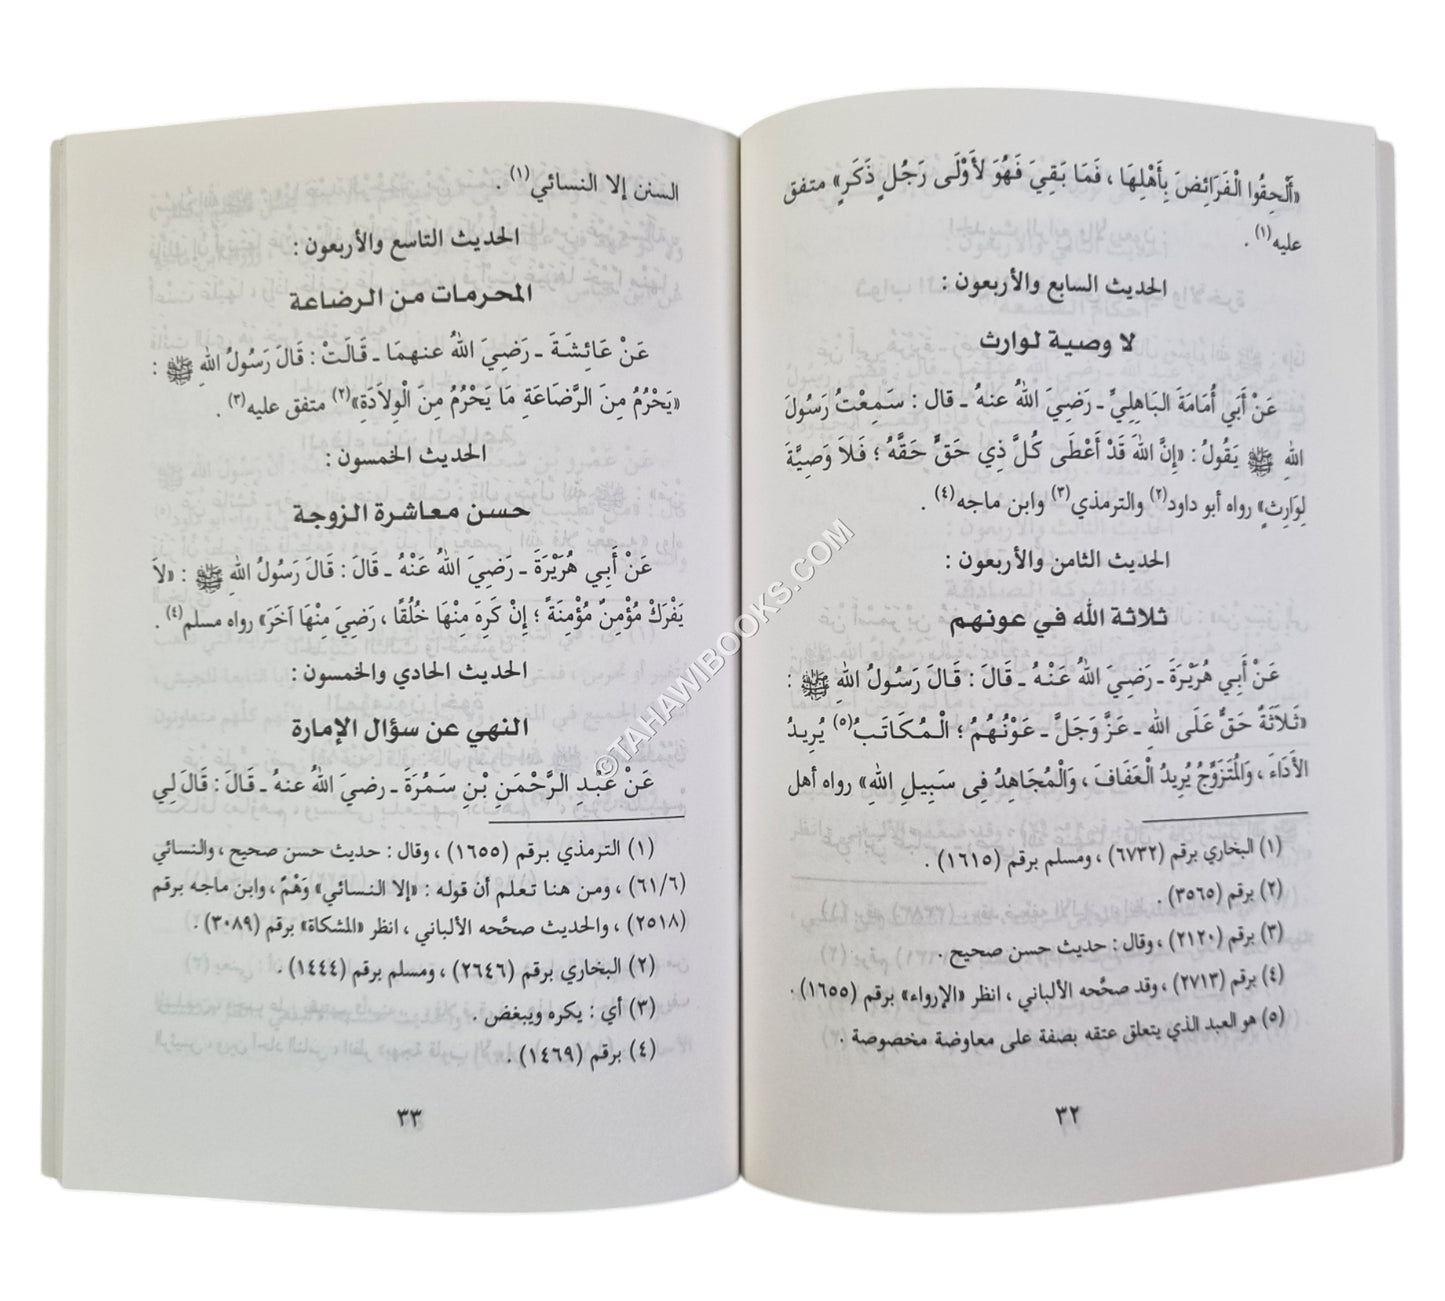 «أَلْحِقُوا الْفَرَائِضَ بِأَهْلِهَا ، فَمَا بَقِيَ فَهُوَ لأَوْلَى رَجُلٍ ذَكَرٍ» متفق
عليه(١) .
الحديث السابع والأربعون :
لا وصية لوارث
عَنْ أَبِي أُمَامَةَ البَاهِلِيِّ ـ رَضِيَ اللهُ عنهُ ـ قال : سَمِعْتُ رَسُولَ
اللهِ ﷺ يَقُولُ : «إِنَّ اللهَ قَدْ أَعْطَى كُلَّ ذِي حَقٍّ حَقَّهُ ؛ فَلاَ وَصِيَّةَ
لِوَارِثٍ» رواه أبو داود(٢) والترمذي(٣) وابن ماجه(٤) .
الحديث الثامن والأربعون :
ثلاثة الله في عونهم
عَنْ أَبِي هُرَيْرَةَ ـ رَضِيَ اللهُ عَنْهُ ـ قَالَ : قَالَ رَسُولُ اللهِ ﷺ :
«ثَلاَثَةٌ حَقٌّ عَلَى اللهِ ـ عَزَّ وَجَلَّ ـ عَوْنُهُمُ ؛ الْمُكَاتَبُ(٥) يُرِيدُ
الأَدَاءَ ، وَالْمُتَزَوِّجُ يُرِيدُ الْعَفَافَ ، وَالْمُجَاهِدُ فِى سَبِيلِ اللهِ» رواه أهل
(١) البخاري برقم (٦٧٣٢) ، ومسلم برقم (١٦١٥) .
(٢) برقم (٣٥٦٥) .
(٣) برقم (٢١٢٠) ، وقال : حديث حسن صحيح .
(٤) برقم (٢٧١٣) ، وقد صحَّحه الألباني ، انظر «الإرواء» برقم (١٦٥٥) .
(٥) هو العبد الذي يتعلق عتقه بصفة على معاوضة مخصوصة .
٣٢
السنن إلا النسائي(١) .
الحديث التاسع والأربعون :
المحرمات من الرضاعة
عَنْ عَائِشَةَ ـ رَضِيَ اللهُ عنهمَا ـ قَالَتْ : قَالَ رَسُولُ اللهِ ﷺ :
«يَحْرُمُ مِنَ الرَّضَاعَةِ مَا يَحْرُمُ مِنَ الْوِلاَدَةِ»(٢) متفق عليه(٣) .
الحديث الخمسون :
حسن معاشرة الزوجة
عَنْ أَبِي هُرَيْرَةَ ـ رَضِيَ اللهُ عَنْهُ ـ قَالَ : قَالَ رَسُولُ اللهِ ﷺ : «لاَ
يَفْرَكْ مُؤْمِنٌ مُؤْمِنَةً ؛ إِنْ كَرِهَ مِنْهَا خُلُقًا ، رَضِيَ مِنْهَا آخَرَ» رواه مسلم(٤) .
الحديث الحادي والخمسون :
النهي عن سؤال الإمارة
عَنْ عَبْدِ الرَّحْمَنِ بْنِ سَمُرَةَ ـ رضيَ اللهُ عنهُ ـ قَالَ : قَالَ لِي
(١) الترمذي برقم (١٦٥٥) ، وقال : حديث حسن صحيح ، والنسائي
(٦١/٦) ، ومن هنا تعلم أن قوله : «إلا النسائي» وَهْمٌ ، وابن ماجه برقم
(٢٥١٨) ، والحديث صحَّحه الألباني ، انظر «المشكاة» برقم (٣٠٨٩) .
(٢) البخاري برقم (٢٦٤٦) ، ومسلم برقم (١٤٤٤) .
(٣) أي : يكره ويبغض .
(٤) برقم (١٤٦٩) .
٣٣
©TAHAWIBOOKS.COM